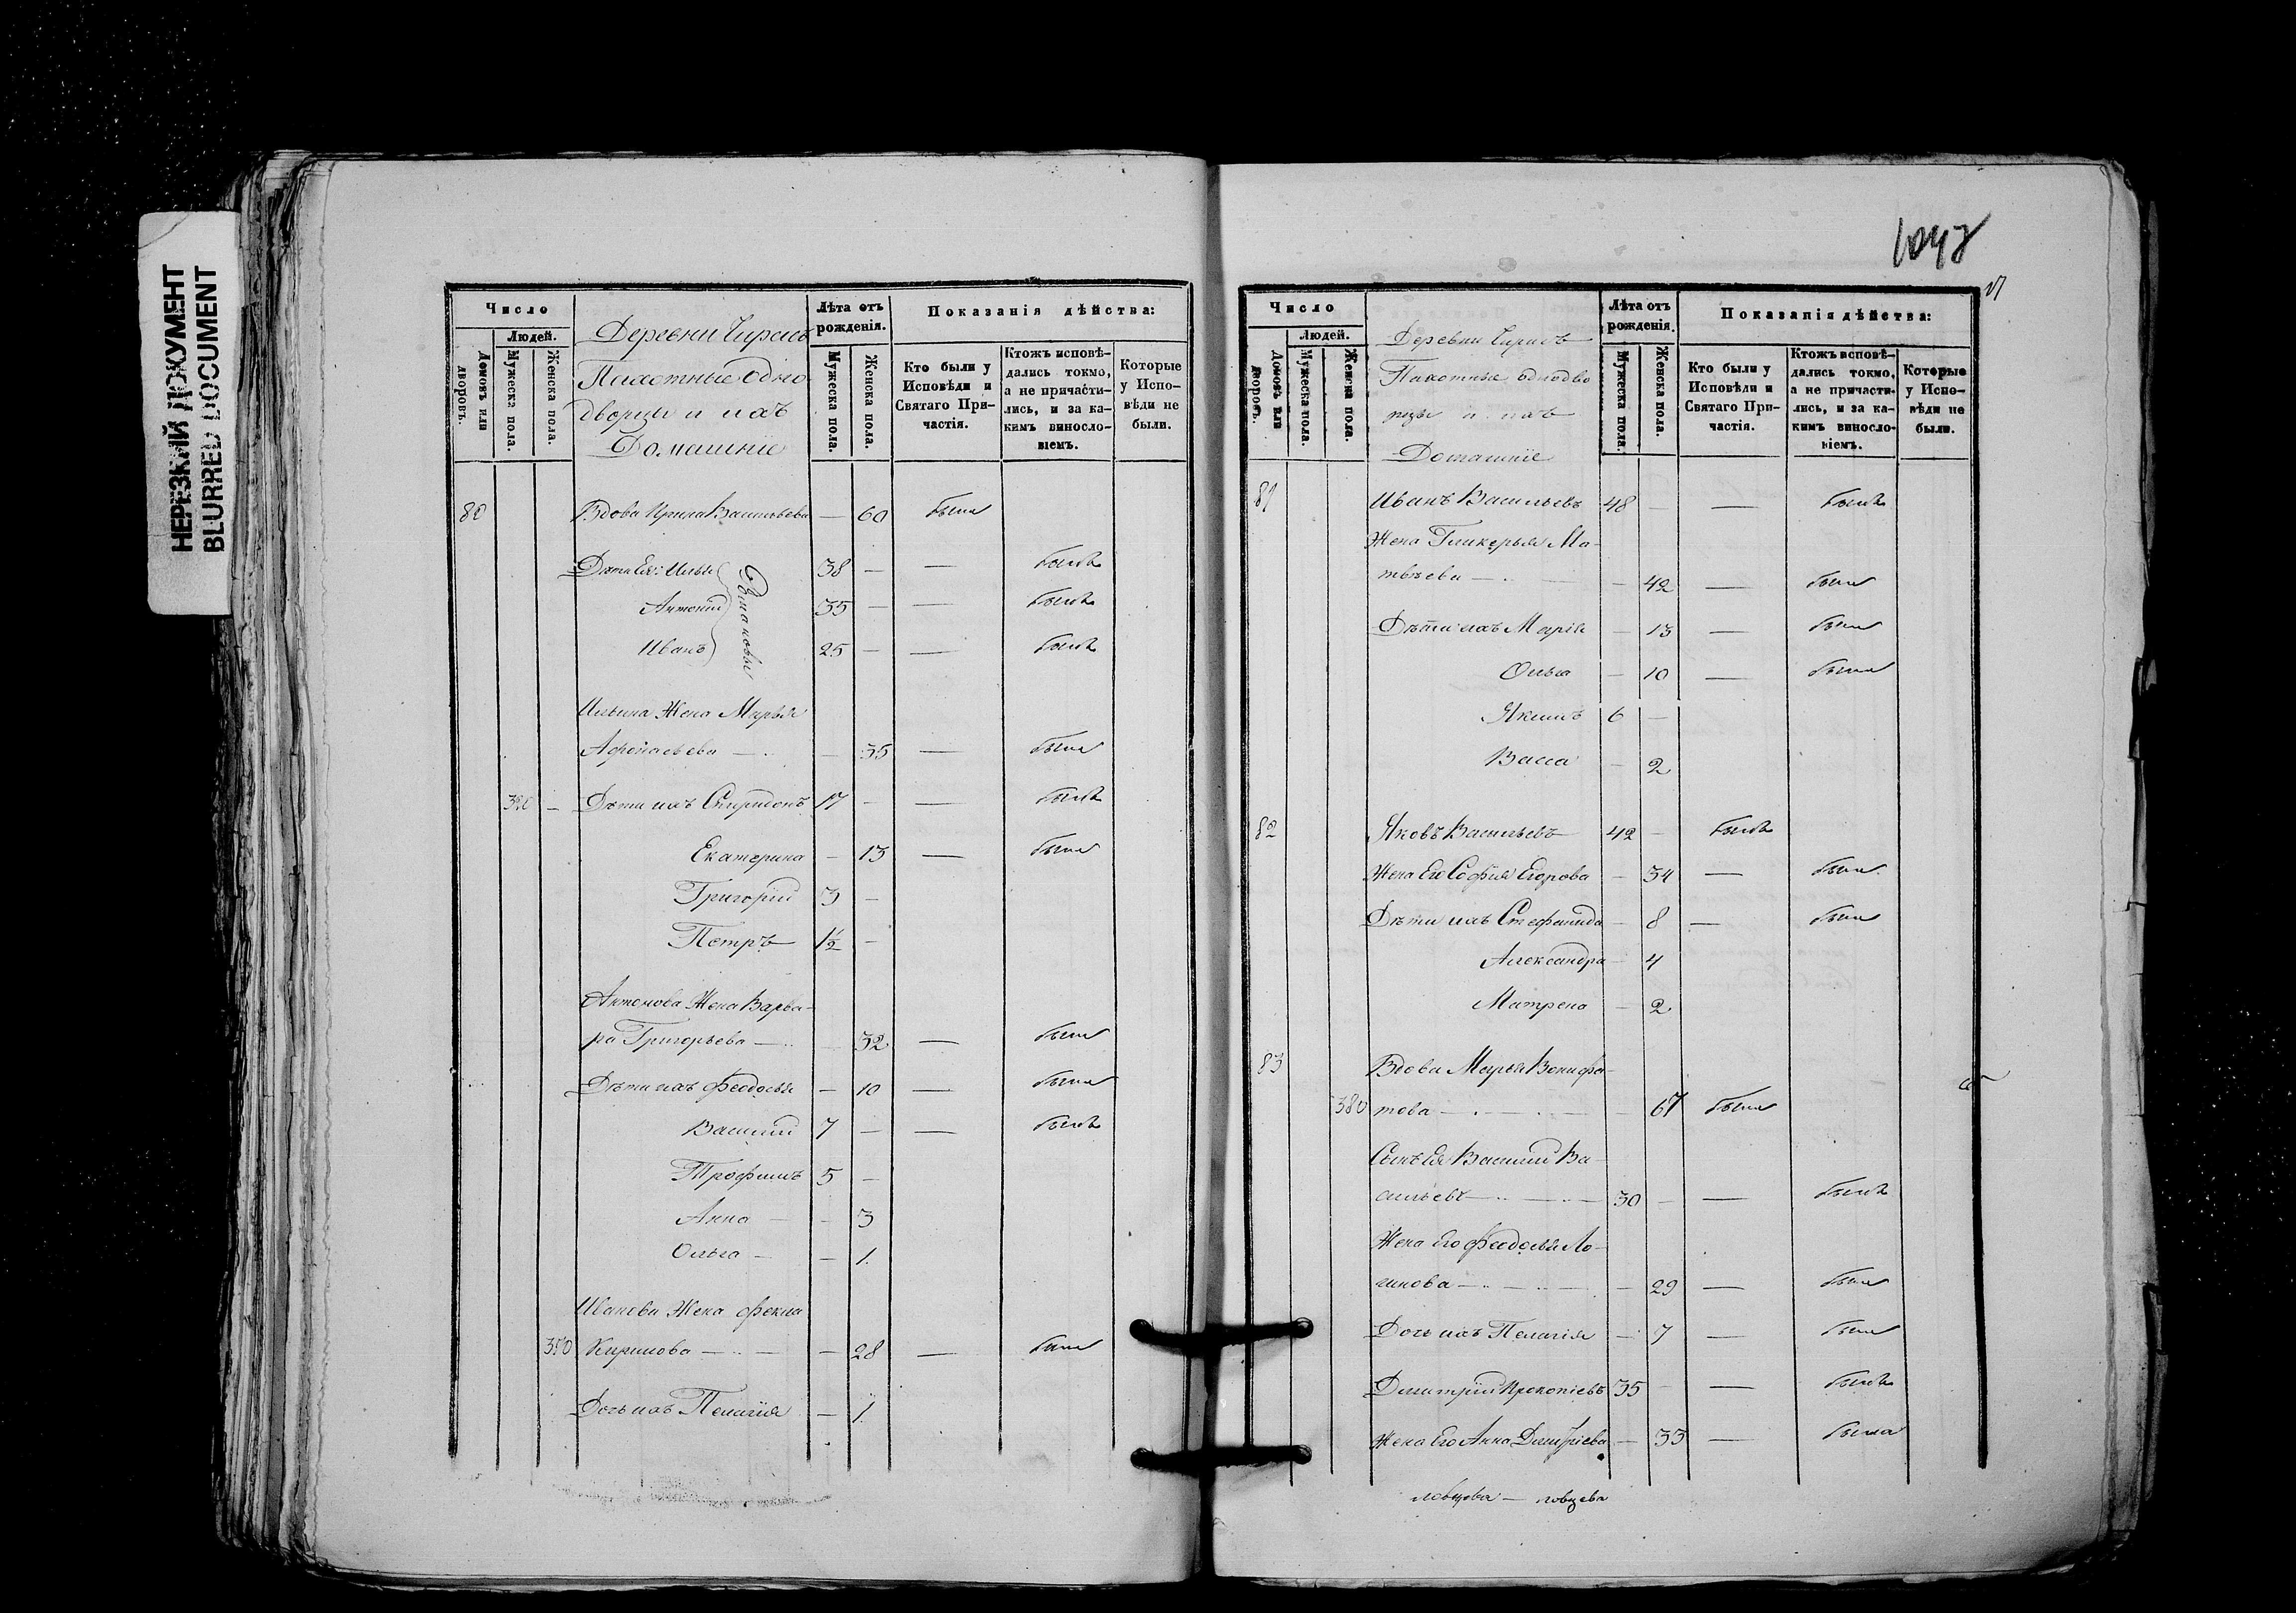 НЕРЕЗКИЙ ДОКУМЕНТ
BLURRED DOCUMENT
Число
Людей.
Домовъ или дворовъ.
Мужеска пола.
Женска пола.
Деревни
Пахотные одно
дворцы и ихъ
Домашніе
Лѣта отъ рожденія.
Мужеска пола.
Женска пола.
Показанія дѣйства:
Кто были у Исповѣди и Святаго Причастія.
Ктожъ исповѣ-
дались токмо,
а не причасти-
лись, и за ка-
кимъ винносло-
віемъ.
Которые
у Испо-
вѣди не
были.
80 Вдова Ирина Васильева — 60 была
Дѣти Ея: Илья 38 — — былъ
Антоній 35 — — былъ
Иванъ 25 — — былъ
Ильина Жена Марья
Афонасьева — — 35 — была
Дѣти ихъ Спиридонъ 17 — — былъ
Екатерина — 13 — была
Григорій 3 —
Петръ 1½ —
Антонова Жена Варва-
ра Григорьева — 32 — была
Дѣти ихъ Феодосья — 10 — была
Василій 7 — — былъ
Трофимъ 5 —
Анна — 3
Ольга — 1.
Иванова Жена Фекла
Кирилова — — 28 — была
Дочь ихъ Пелагія — 1.
1047
Число
Людей.
Домовъ или дворовъ.
Мужеска пола.
Женска пола.
Деревни
Пахотные однодво
рцы и ихъ
Домашніе
Лѣта отъ рожденія.
Мужеска пола.
Женска пола.
Показанія дѣйства:
Кто были у Исповѣди и Святаго Причастія.
Ктожъ исповѣ-
дались токмо,
а не причасти-
лись, и за ка-
кимъ винносло-
віемъ.
Которые
у Испо-
вѣди не
были.
81 Иванъ Васильевъ 48 — — былъ
Жена Гликерья Ма-
твѣева — — 42 — была
Дѣти ихъ Марія — 13 — была
Ольга — 10 — была
Якимъ 6 —
Васса — 2
82 Яковъ Васильевъ 42 — былъ
Жена Его Софія Егорова — 34 — была
Дѣти ихъ Стефанида — 8 — была
Александра — 4
Матрена — 2
83 Вдова Марья Вонифа-
380 това — — 67 была
Сынъ Ея Василій Ва-
сильевъ — 30 — — былъ
Жена Его Феодосья Ло-
гинова — — 29 — была
Дочь ихъ Пелагія — 7 — была
Димитрій Прокопіевъ 35 — — былъ
Жена Его Анна Димитріева — 33 — была